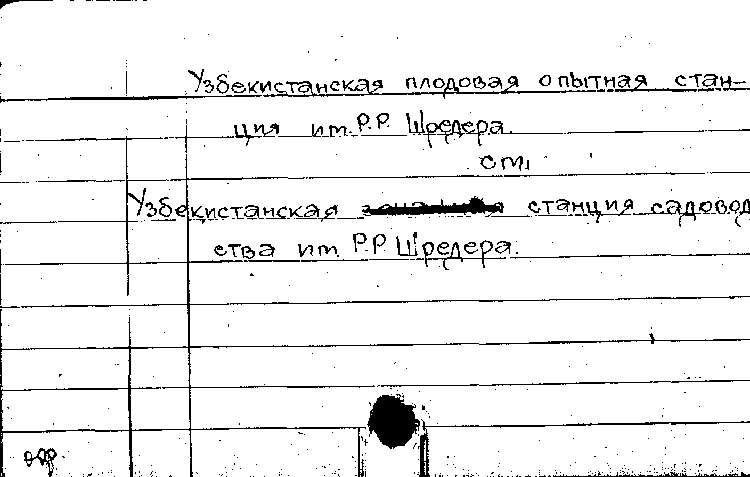 Узбекистанская плодовая опытная стан-
ция им. Р.Р. Шредера.
см.
Узбекистанская станция садовод
ства им. Р.Р. Шредера.